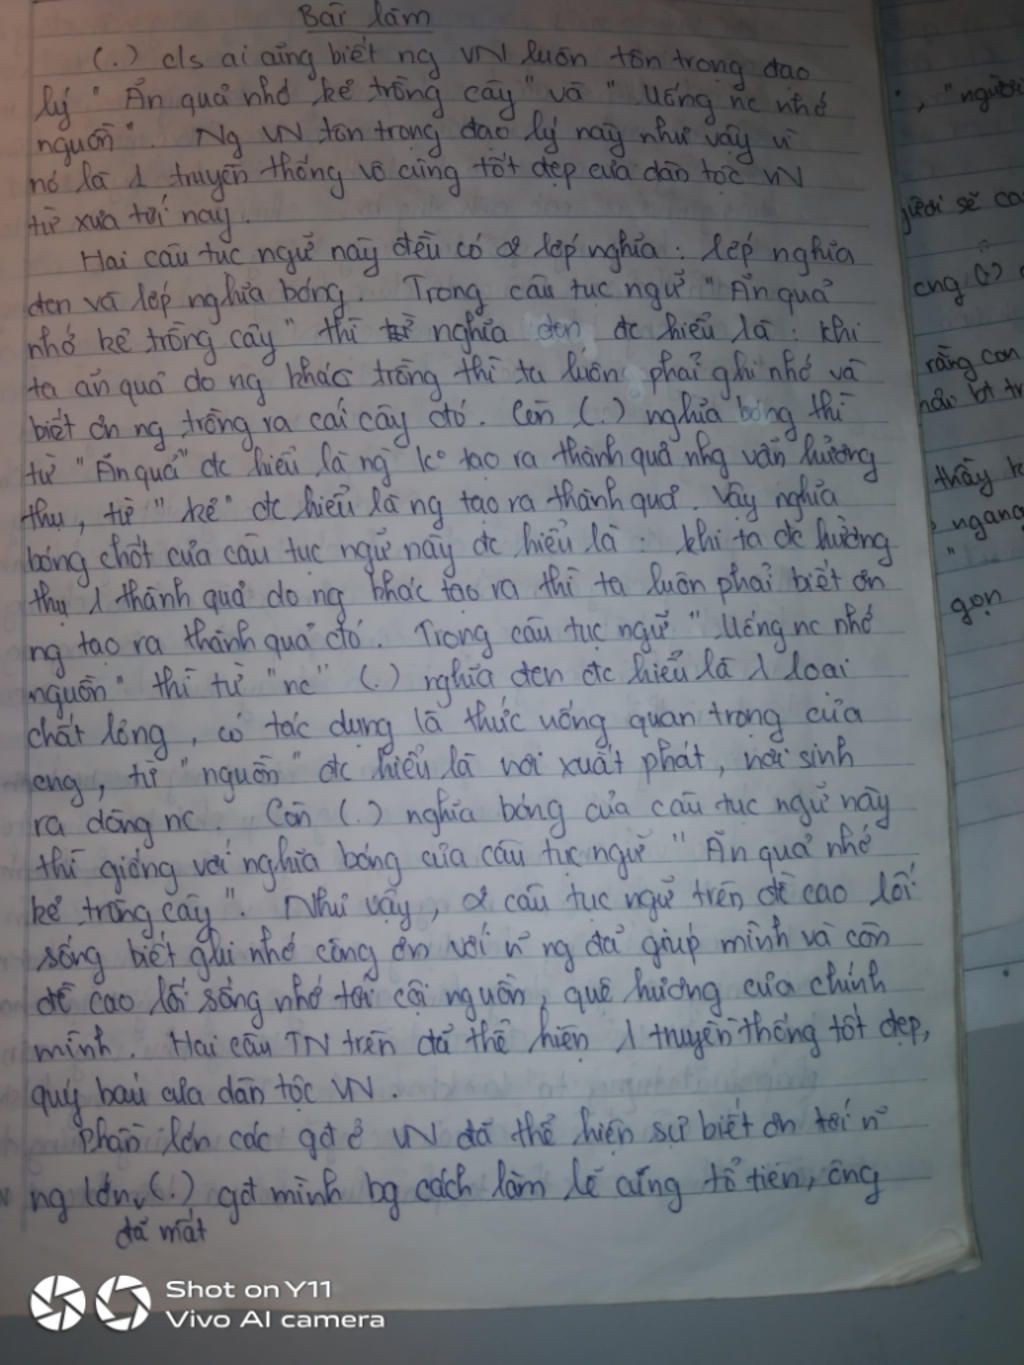 Bài làm
(.) c/s ai cũng biết ng VN luôn tôn trọng đạo
lý "Ăn quả nhớ kẻ trồng cây" và "Uống nc nhớ
nguồn". Ng VN tôn trọng đạo lý này như vậy vì
nó là 1 truyền thống vô cùng tốt đẹp của dân tộc VN
từ xưa tới nay.
Hai câu tục ngữ này đều có 2 lớp nghĩa: lớp nghĩa
đen và lớp nghĩa bóng. Trong câu tục ngữ "Ăn quả
nhớ kẻ trồng cây" thì nghĩa đen đc hiểu là: khi
ta ăn quả do ng khác trồng thì ta luôn phải ghi nhớ và
biết ơn ng trồng ra cái cây đó. Còn (.) nghĩa bóng thì
từ "Ăn quả" đc hiểu là ng ko tạo ra thành quả nhg vẫn hưởng
thụ, từ "kẻ" đc hiểu là ng tạo ra thành quả. Vậy nghĩa
bóng chốt của câu tục ngữ này đc hiểu là: khi ta đc hưởng
thụ 1 thành quả do ng khác tạo ra thì ta luôn phải biết ơn
ng tạo ra thành quả đó. Trong câu tục ngữ "Uống nc nhớ
nguồn" thì từ "nc" (.) nghĩa đen đc hiểu là 1 loại
chất lỏng, có tác dụng là thức uống quan trọng của
cng, từ "nguồn" đc hiểu là nơi xuất phát, nơi sinh
ra dòng nc. Còn (.) nghĩa bóng của câu tục ngữ này
thì giống với nghĩa bóng của câu tục ngữ "Ăn quả nhớ
kẻ trồng cây". Như vậy, 2 câu tục ngữ trên đề cao lối
sống biết ghi nhớ công ơn với n~ ng đã giúp mình và còn
đề cao lối sống nhớ tới cội nguồn, quê hương của chính
mình. Hai câu TN trên đã thể hiện 1 truyền thống tốt đẹp,
quý báu của dân tộc VN.
Phần lớn các gđ ở VN đã thể hiện sự biết ơn tới n~
ng lớn (.) gđ mình bg cách làm lễ cúng tổ tiên, ông
đã mất
, "người
người sẽ
cng (.)
rằng con
thầy
ngang
"
gọn
Shot on Y11
Vivo AI camera